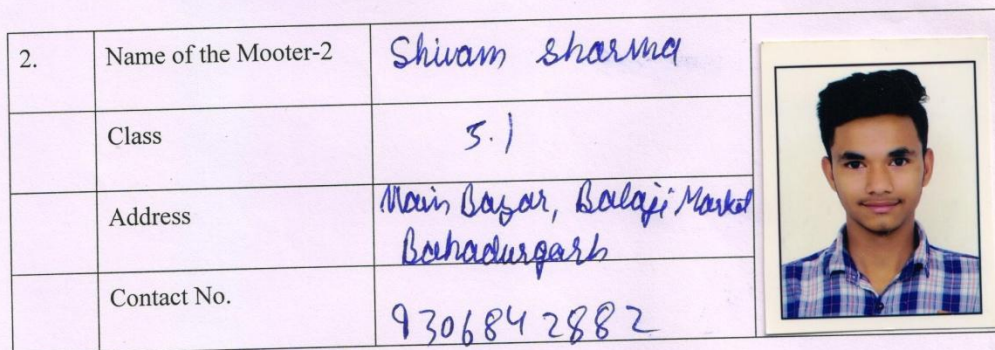 2. Name of the Mooter-2 Shivam sharma
Class 5.1
Address Main Bazar, Balaji Market
Bahadurgarh
Contact No. 9306842882